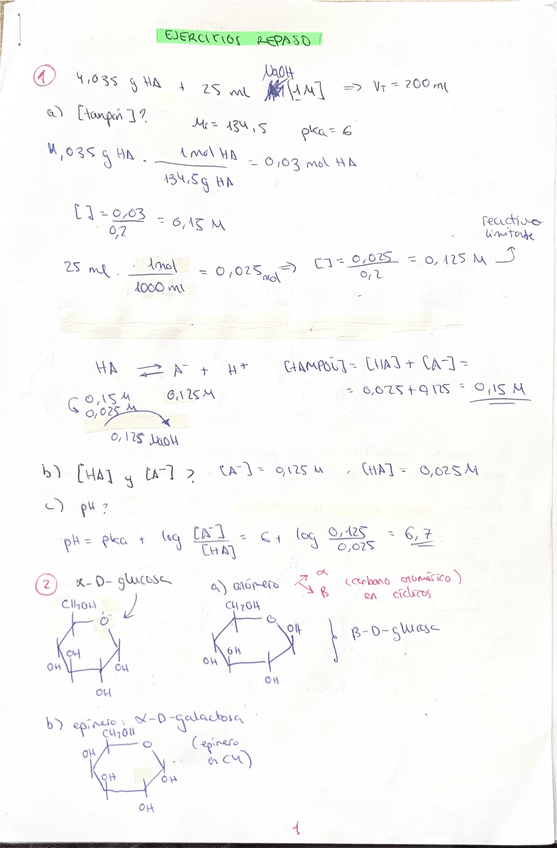 EJERCICIOS REPASO
① 4,035 g HA + 25 ml NaOH [1M] ⇒ VT = 200 ml
a) [tampón]? Mr = 134,5 pka = 6
4,035 g HA · 1 mol HA / 134,5 g HA = 0,03 mol HA
[ ] = 0,03 / 0,2 = 0,15 M
reactivo
limitante
25 ml · 1 mol / 1000 ml = 0,025 mol ⇒ [ ] = 0,025 / 0,2 = 0,125 M
HA ⇌ A⁻ + H⁺ [TAMPOÜ] = [HA] + [A⁻] =
0,15 M 0,125 M = 0,025 + 0,125 = 0,15 M
0,025 M
0,125 NaOH
b) [HA] y [A⁻]? [A⁻] = 0,125 M , [HA] = 0,025 M
c) pH?
pH = pka + log [A⁻] / [HA] = 6 + log 0,125 / 0,025 = 6,7
② α-D-glucosa a) anómero α β (carbono anomérico)
en cíclicos
CH₂OH O OH OH OH OH
CH₂OH O OH OH OH OH } β-D-glucosa
b) epímero: α-D-galactosa
(epímero
en C4)
CH₂OH OH O OH OH OH
1